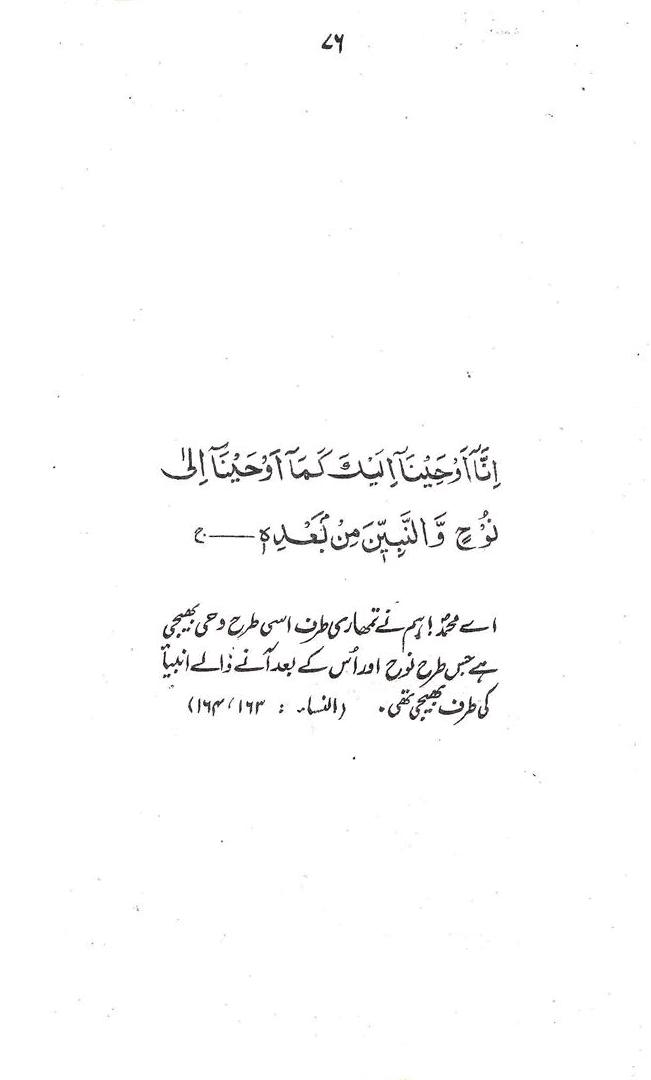 ۷۶
اِنَّآ اَوْحَيْنَآ اِلَيْكَ كَمَآ اَوْحَيْنَآ اِلٰى
نُوْحٍ وَّالنَّبِيّٖنَ مِنْۢ بَعْدِهٖ ——ج
اے محمدؐ! ہم نے تمھاری طرف اسی طرح وحی بھیجی
ہے جس طرح نوح اور اُس کے بعد آنے والے انبیأ
کی طرف بھیجی تھی۔ (النساء : ۱۶۳ ، ۱۶۴)